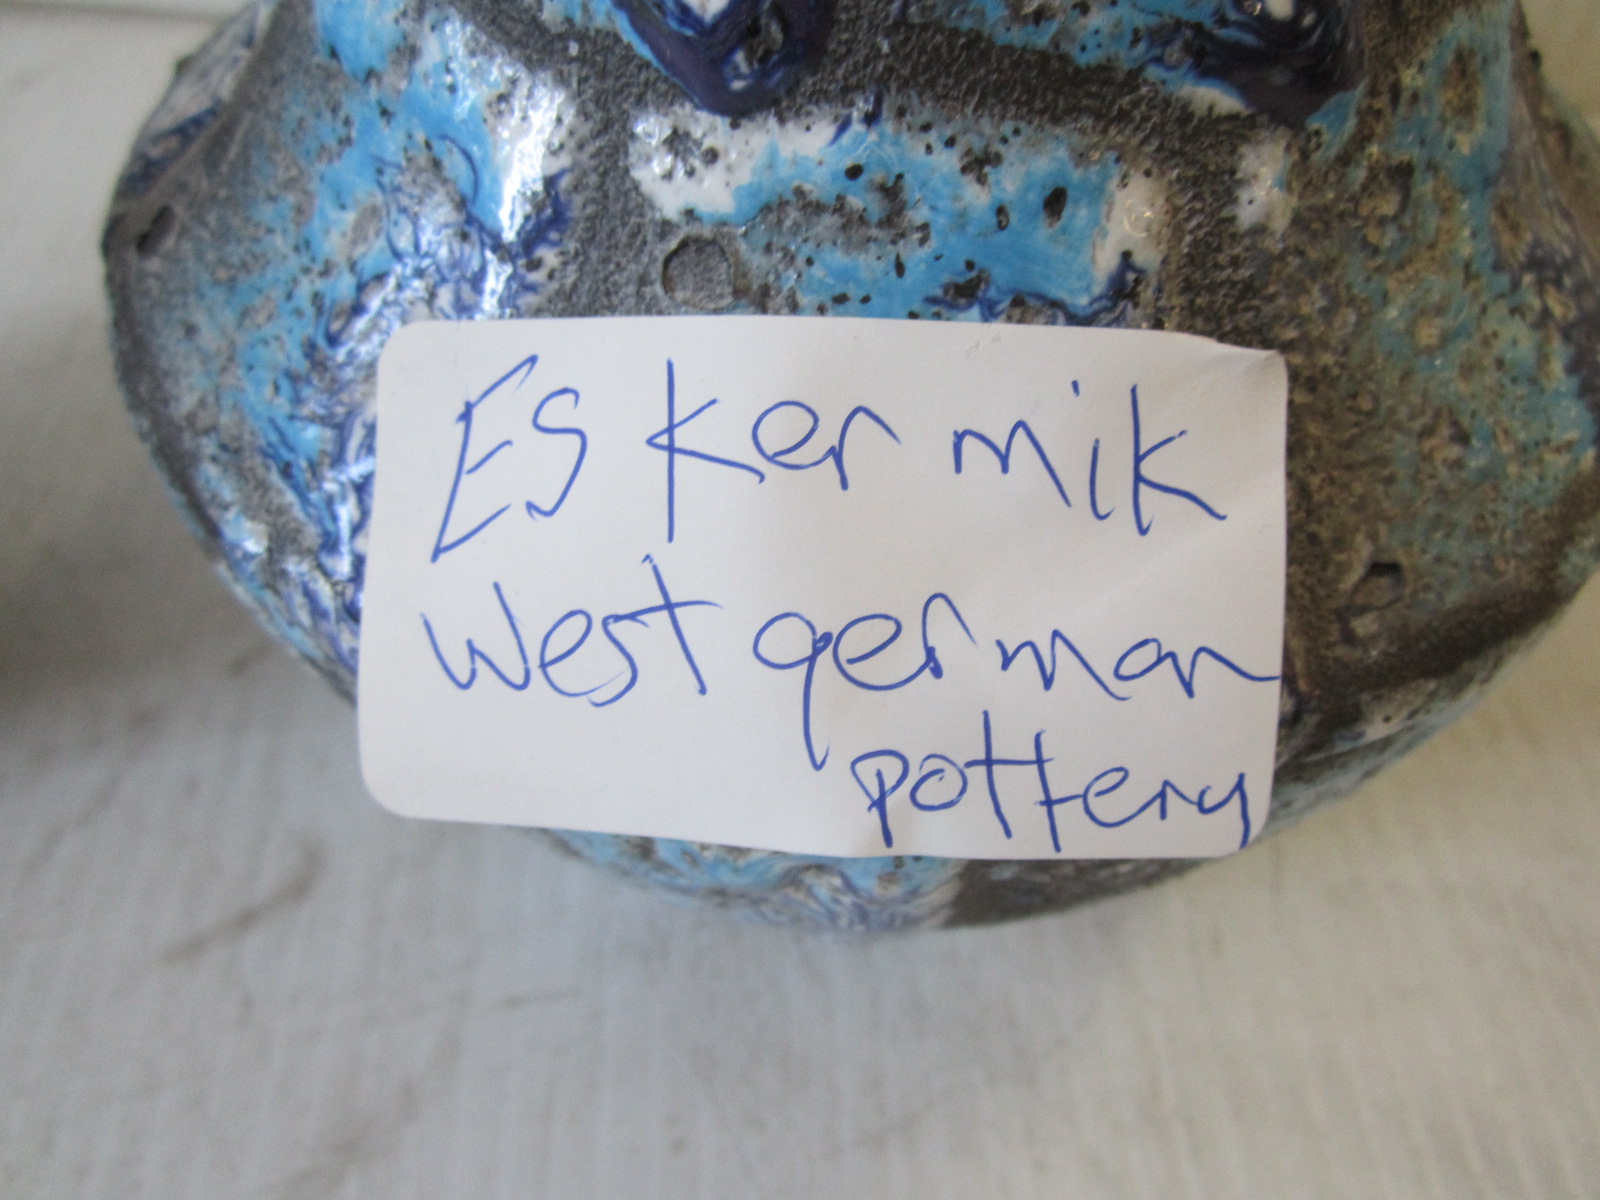 ES Kermik
West german
pottery